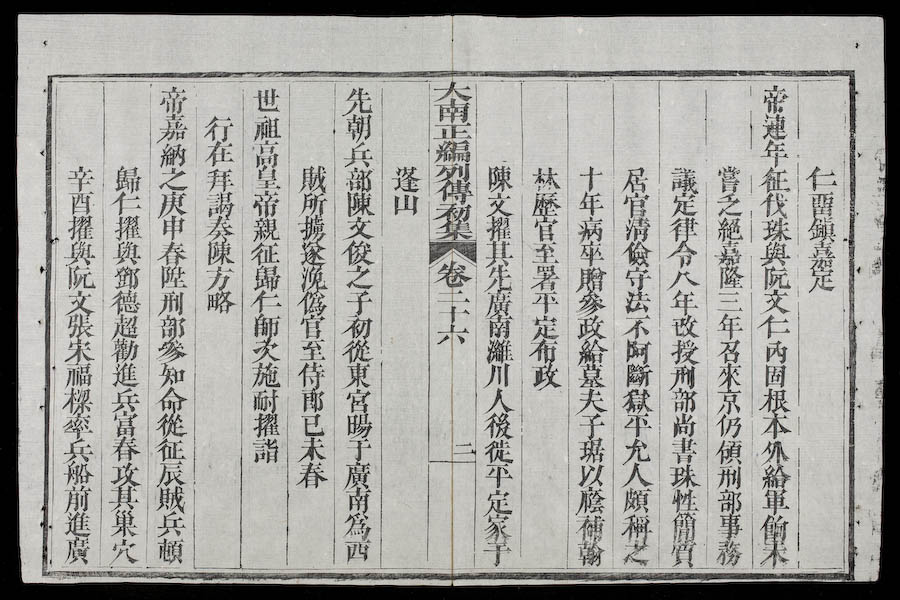 仁畱鎭嘉定
帝連年征伐珠與阮文仁內固根本外給軍餉未
嘗乏絕嘉隆三年召來京仍領刑部事務
議定律令八年改授刑部尚書珠性簡質
居官淸儉守法不阿斷獄平允人頗稱之
十年病卒贈參政給墓夫子琚以廕補翰
林歷官至署平定布政
陳文擢其先廣南濰川人後徙平定家于
大南正編列傳初集 卷二十六 二
蓬山
先朝兵部陳文俊之子初從東宮暘于廣南爲西
賊所擄遂浼僞官至侍郎己未春
世祖高皇帝親征歸仁師次施耐擢詣
行在拜謁奏陳方略
帝嘉納之庚申春陞刑部參知命從征辰賊兵頓
歸仁擢與鄧德超勸進兵富春攻其巢穴
辛酉擢與阮文張宋福樑率兵船前進廣